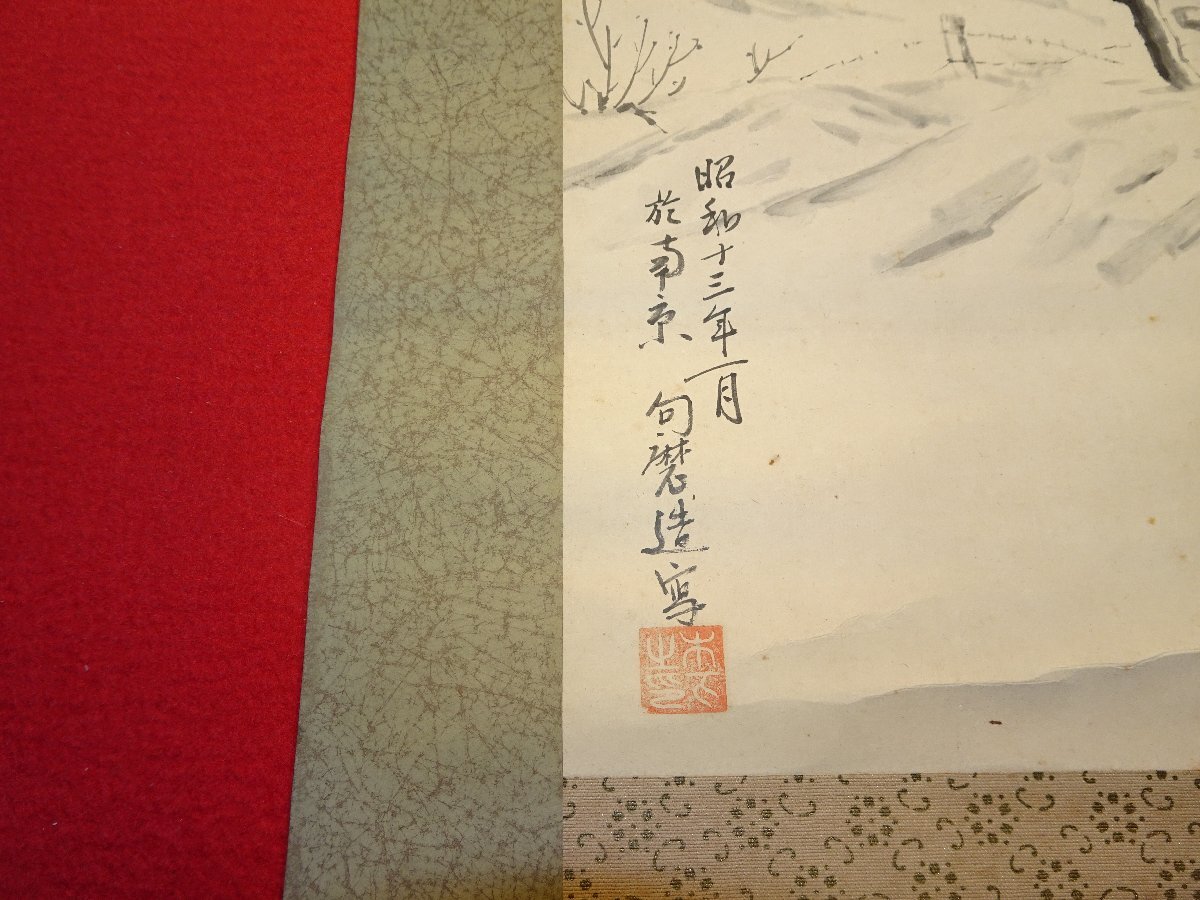 昭和十三年一月
於南京 句磨造写